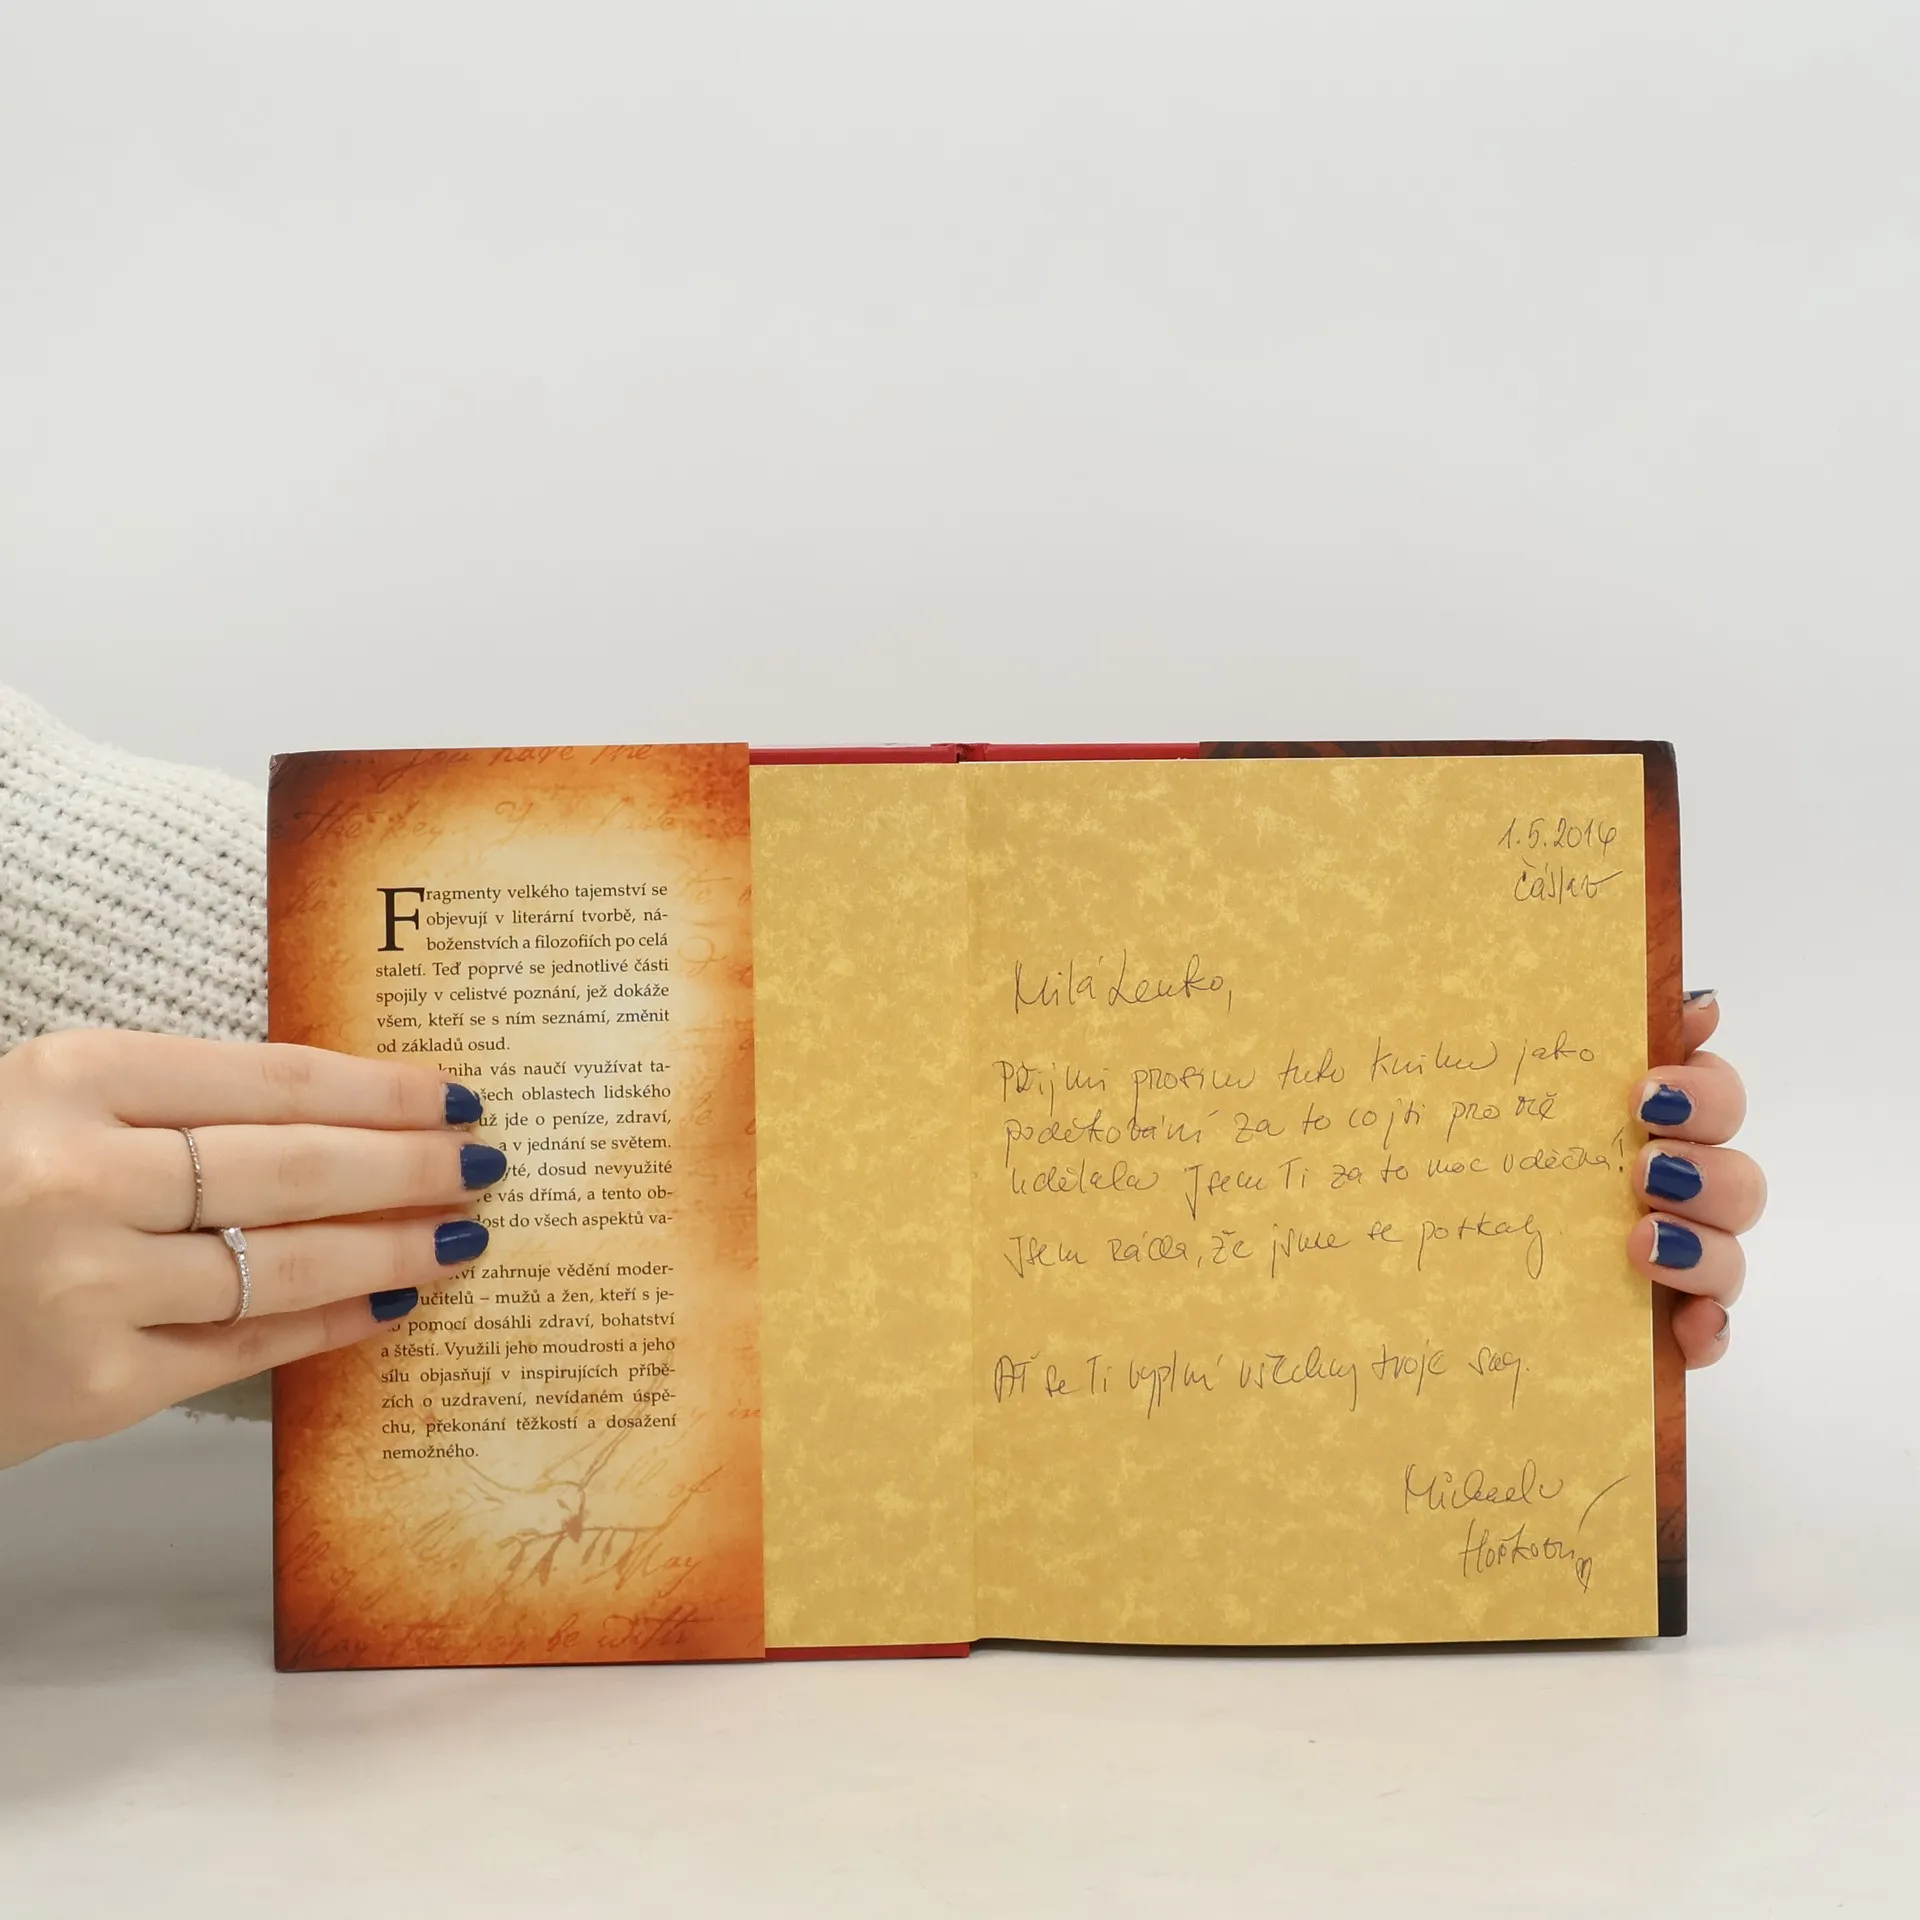 Fragmenty velkého tajemství se
objevují v literární tvorbě, ná-
boženstvích a filozofiích po celá
staletí. Teď poprvé se jednotlivé části
spojily v celistvé poznání, jež dokáže
všem, kteří se s ním seznámí, změnit
od základů osud.
kniha vás naučí využívat ta-
šech oblastech lidského
už jde o peníze, zdraví,
a v jednání se světem.
yté, dosud nevyužité
vás dřímá, a tento ob-
dost do všech aspektů va-
ví zahrnuje vědění moder-
učitelů – mužů a žen, kteří s je-
pomocí dosáhli zdraví, bohatství
a štěstí. Využili jeho moudrosti a jeho
sílu objasňují v inspirujících příbě-
zích o uzdravení, nevídaném úspě-
chu, překonání těžkostí a dosažení
nemožného.
1.5.2014
Čáslav
Milá Lenko,
Přijmi prosím tuto knihu jako
poděkování za to co jsi pro mě
udělala. Jsem Ti za to moc vděčná!
Jsem ráda, že jsme se potkaly.
Ať se Ti vyplní všechny tvoje sny.
Michaela